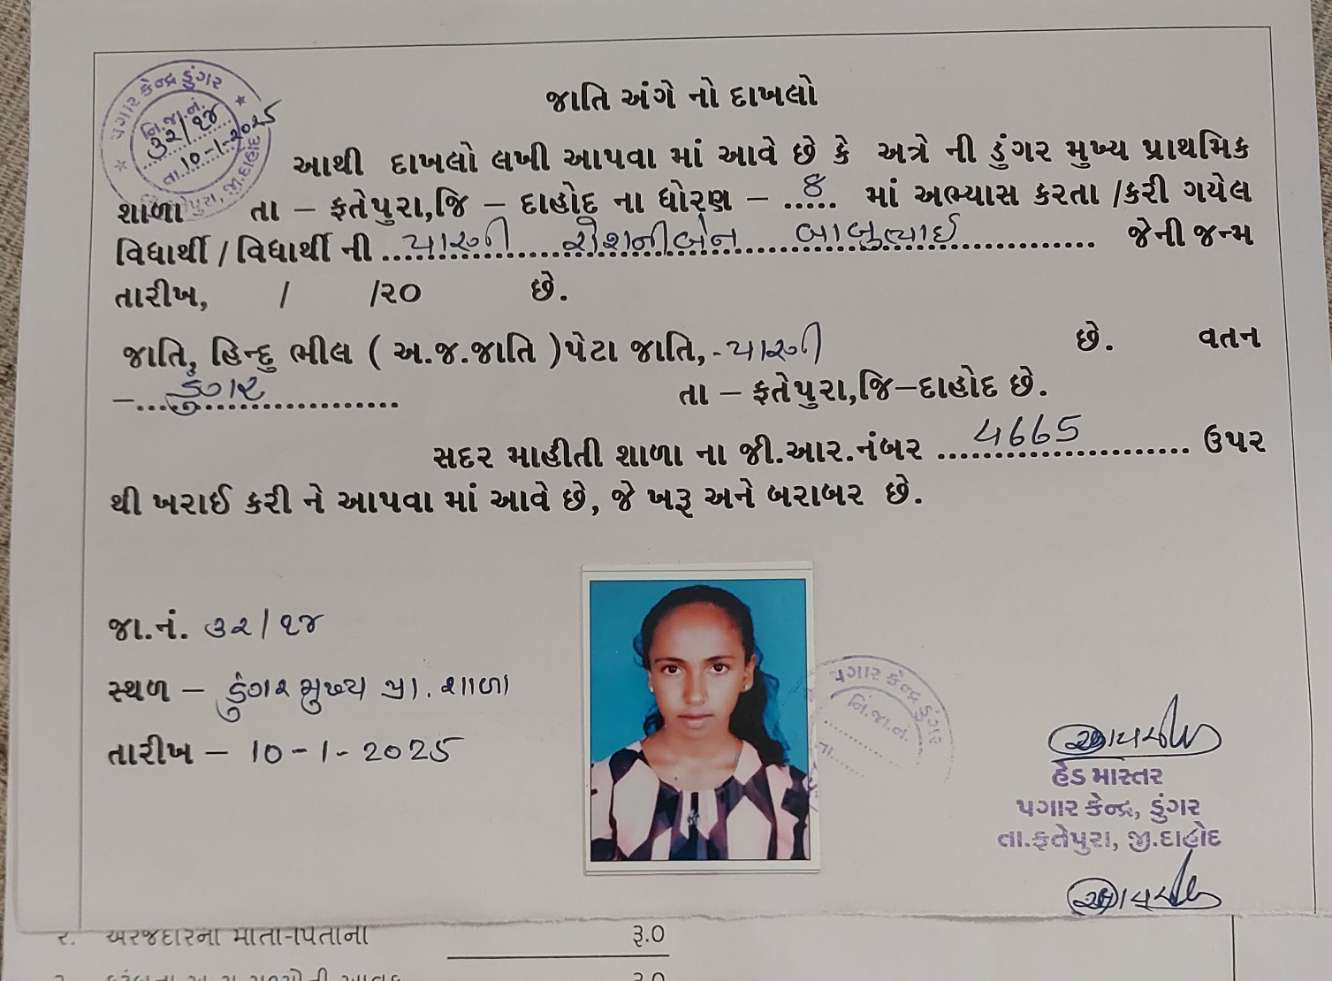 પગાર કેન્દ્ર ડુંગર
નિ.જા.નં.
૩૨/૧૪
તા.10-1-2025
જી.દાહોદ
જાતિ અંગે નો દાખલો
આથી દાખલો લખી આપવા માં આવે છે કે અત્રે ની ડુંગર મુખ્ય પ્રાથમિક
શાળા તા – ફતેપુરા,જિ – દાહોદ ના ધોરણ – ...8... માં અભ્યાસ કરતા /કરી ગયેલ
વિધાર્થી / વિધાર્થી ની પારગી રોશનીબેન બાબુભાઈ જેની જન્મ
તારીખ, / /૨૦ છે.
જાતિ, હિન્દુ ભીલ ( અ.જ.જાતિ ) પેટા જાતિ,- પારગી છે. વતન
– ડુંગર તા – ફતેપુરા,જિ–દાહોદ છે.
સદર માહીતી શાળા ના જી.આર.નંબર 4665 ઉપર
થી ખરાઈ કરી ને આપવા માં આવે છે, જે ખરૂ અને બરાબર છે.
જા.નં. ૩૨/૧૪
સ્થળ – ડુંગર મુખ્ય પ્રા. શાળા
તારીખ – 10-1-2025
પગાર કેન્દ્ર ડુંગર
નિ.જા.નં.
તા.
હેડ માસ્તર
પગાર કેન્દ્ર, ડુંગર
તા.ફતેપુરા, જી.દાહોદ
૨. અરજદારના માતા-પિતાના રૂ.0